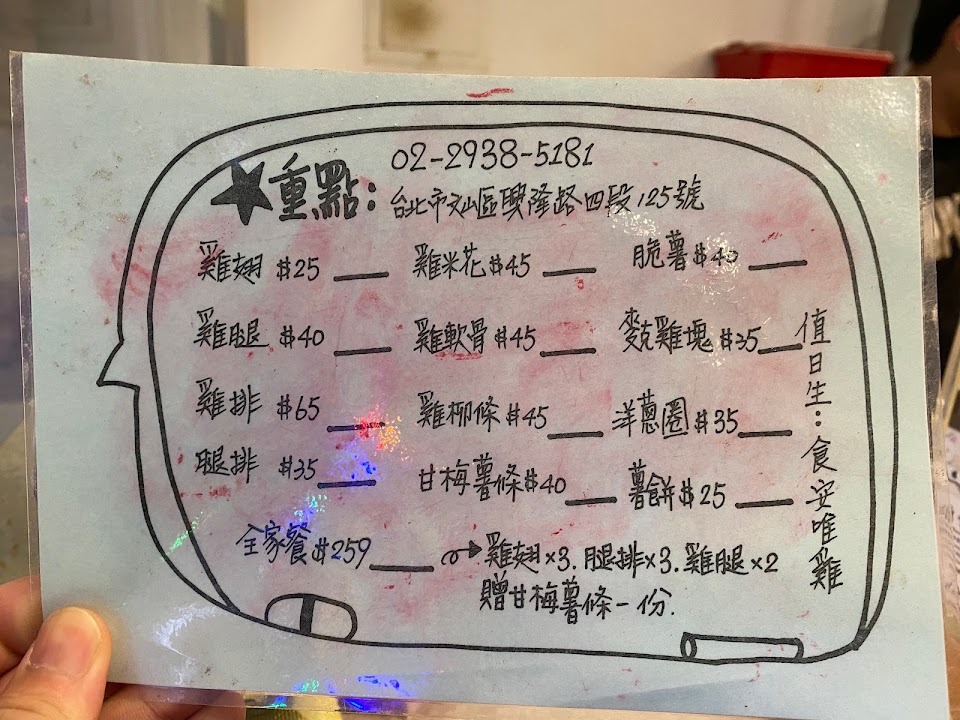 ★重點：
02-2938-5181
台北市文山區興隆路四段125號
雞翅 $25 ___ 雞米花 $45 ___ 脆薯 $40 ___
雞腿 $40 ___ 雞軟骨 $45 ___ 麥克雞塊 $35 ___
雞排 $65 ___ 雞柳條 $45 ___ 洋蔥圈 $35 ___
腿排 $35 ___ 甘梅薯條 $40 ___ 薯餅 $25 ___
全家餐 $259 ___ → 雞翅×3. 腿排×3. 雞腿×2
贈甘梅薯條一份.
值日生：食安唯雞